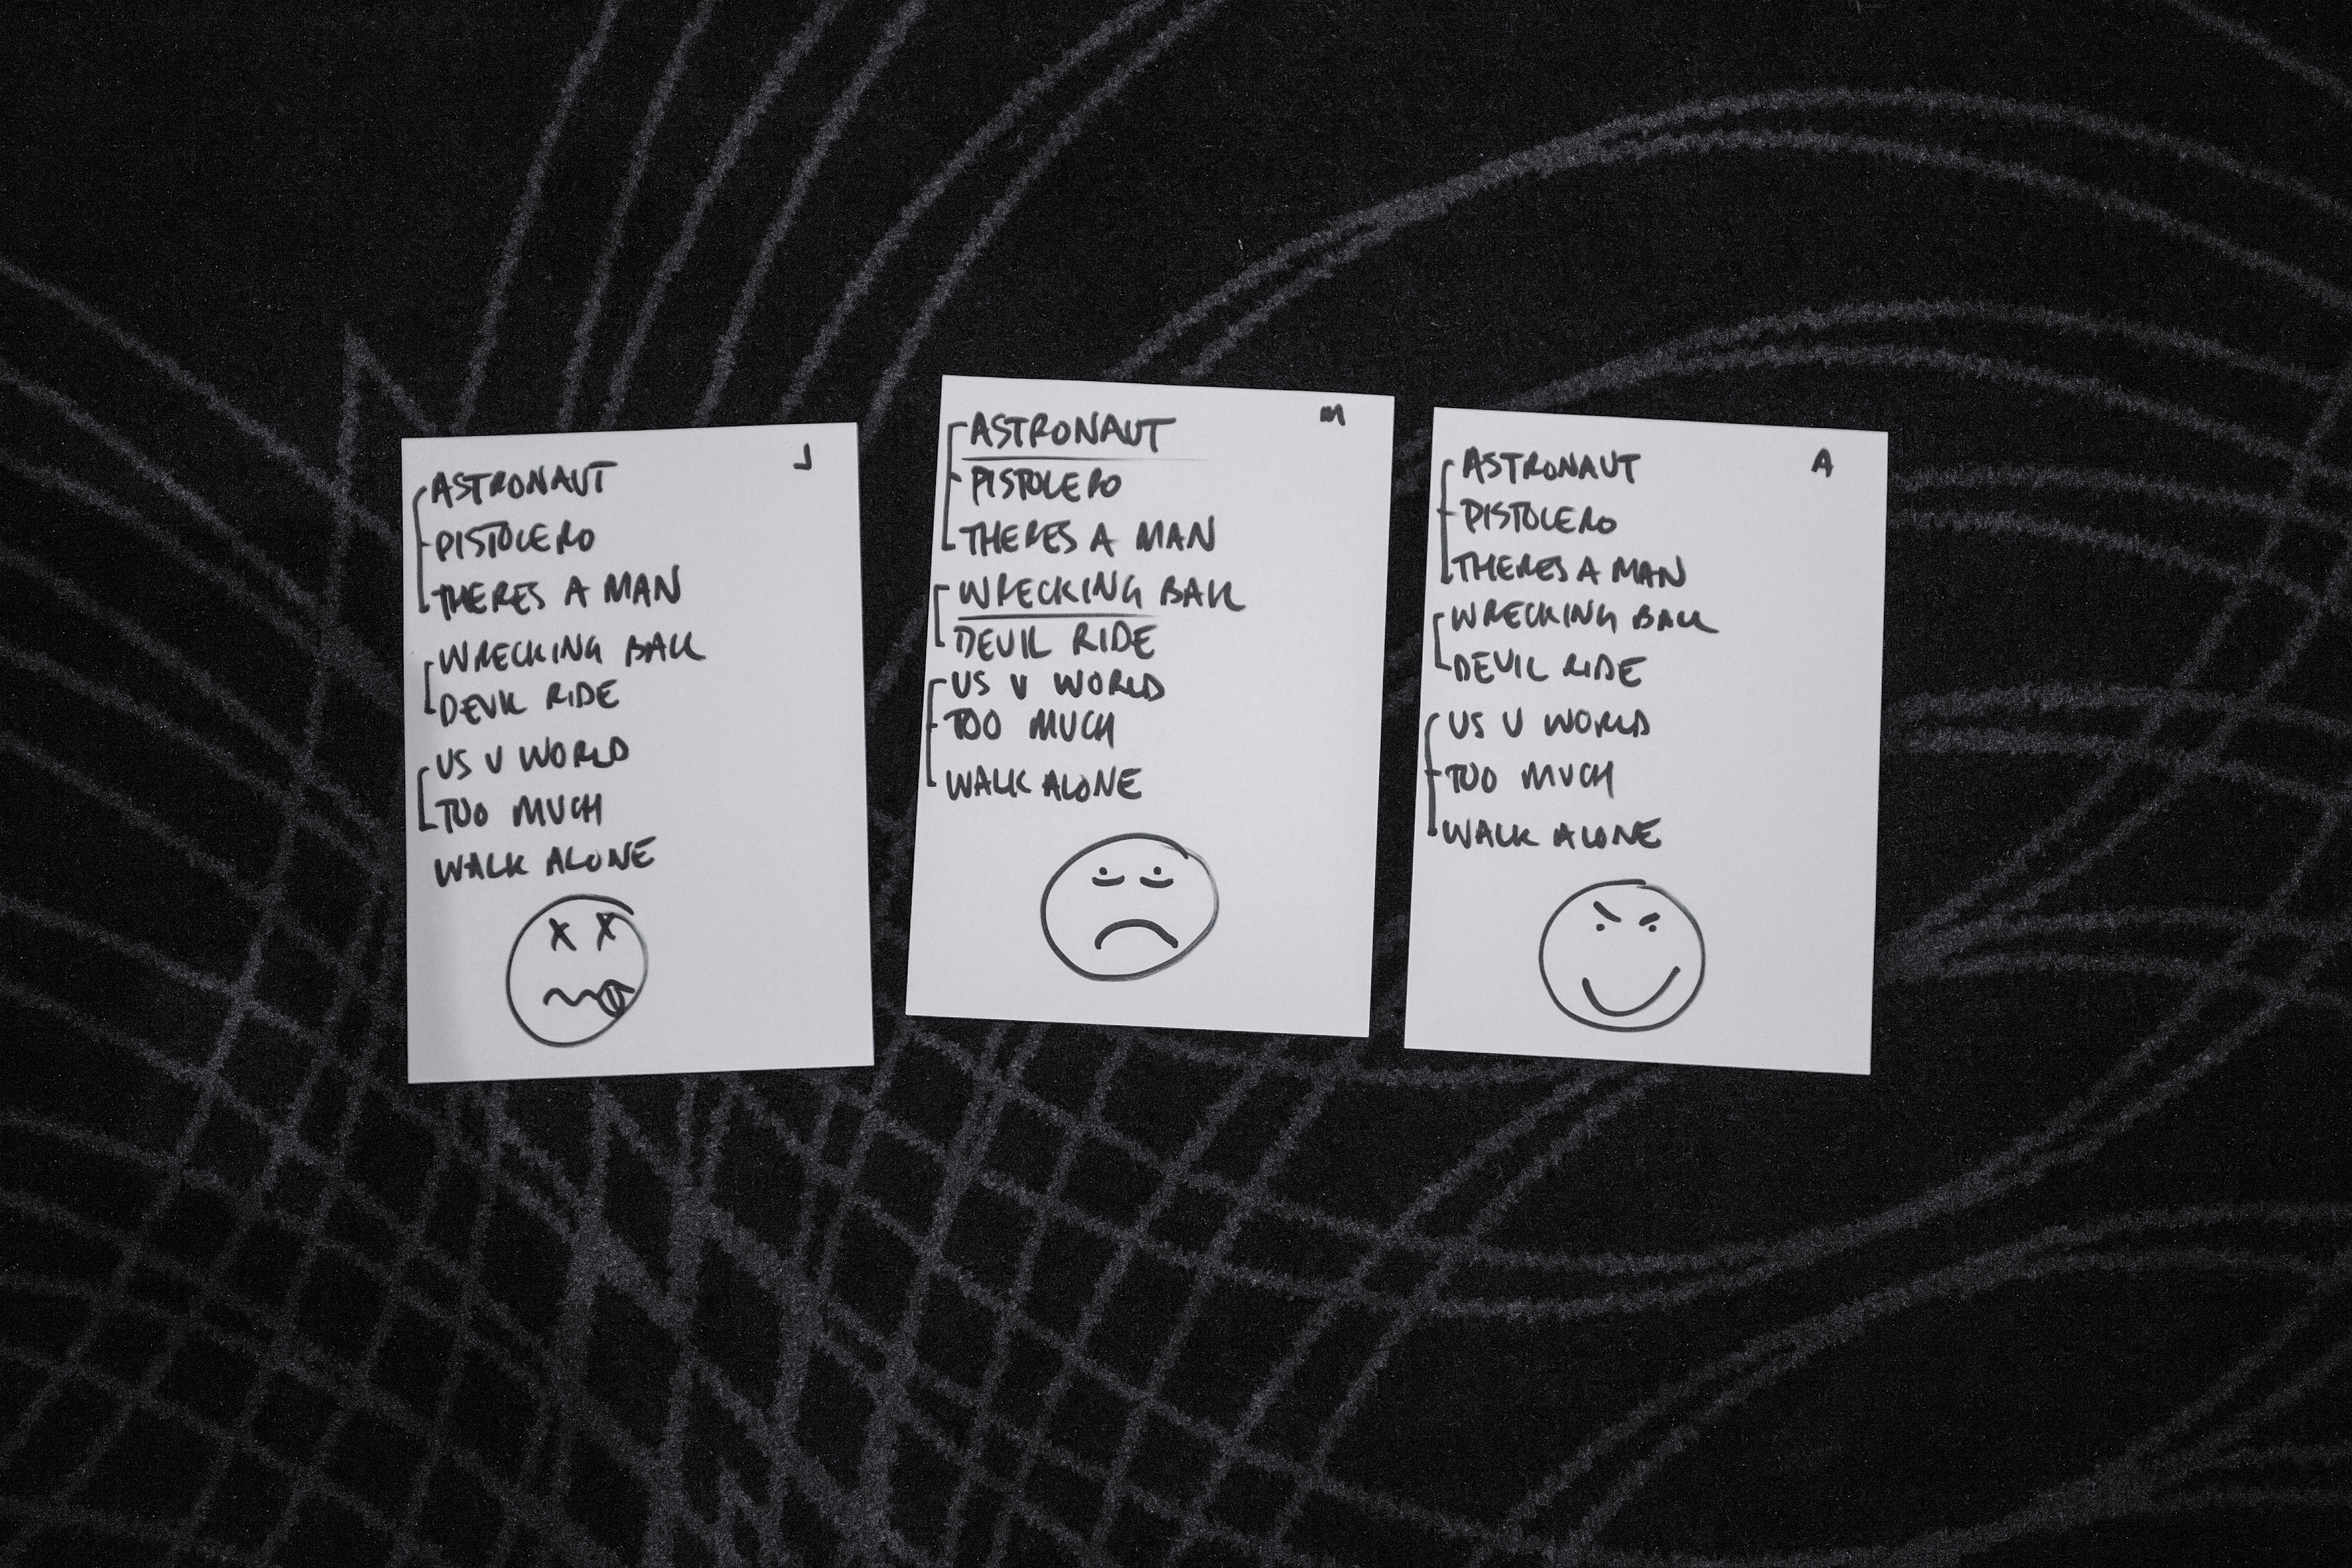 J
ASTRONAUT
PISTOLERO
THERES A MAN
WRECKING BALL
DEVIL RIDE
US V WORLD
TOO MUCH
WALK ALONE
M
ASTRONAUT
PISTOLERO
THERES A MAN
WRECKING BALL
DEVIL RIDE
US V WORLD
TOO MUCH
WALK ALONE
A
ASTRONAUT
PISTOLERO
THERES A MAN
WRECKING BALL
DEVIL RIDE
US V WORLD
TOO MUCH
WALK ALONE